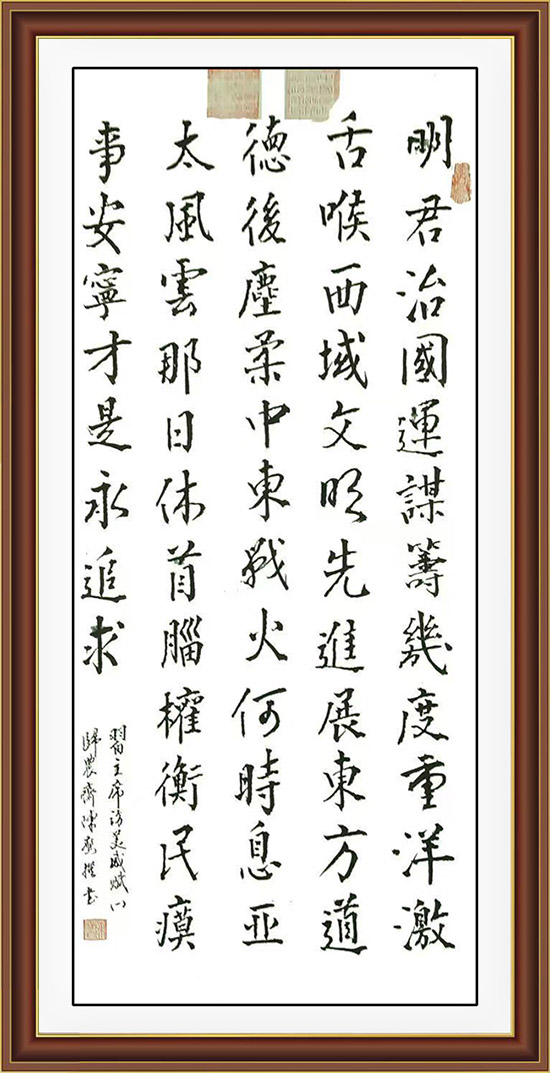 明君治國運謀籌幾度重洋激
舌喉西域文明先進展東方道
德後塵柔中東戰火何時息亞
太風雲那日休首腦權衡民瘼
事安寧才是永追求
習主席訪美感賦
歸農齋陳 撰書